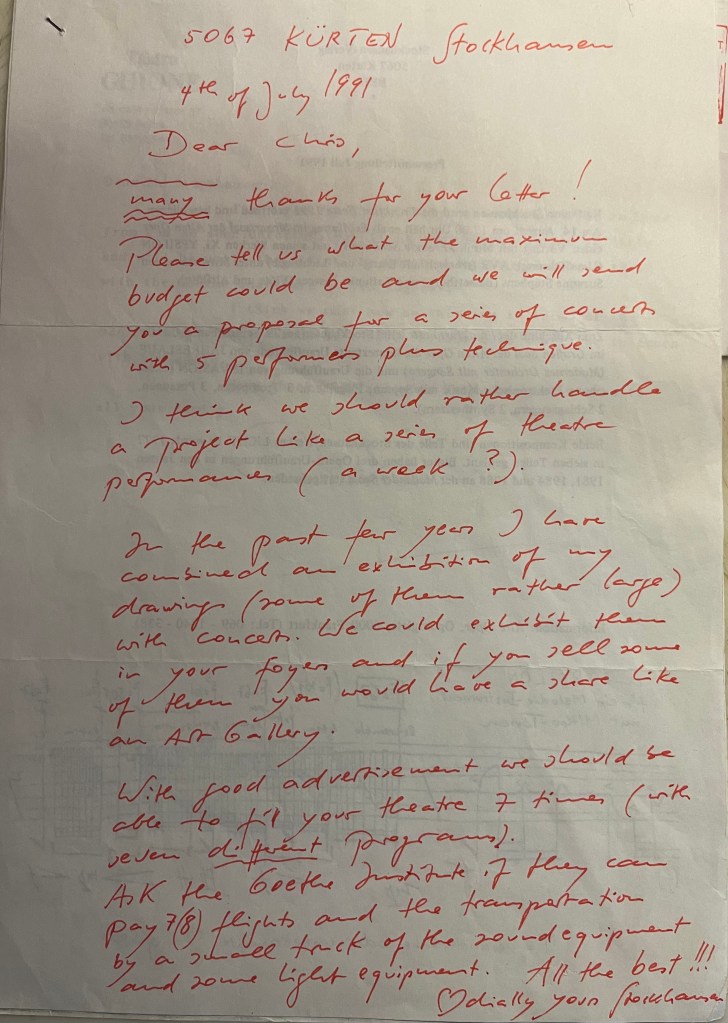 5067 KÜRTEN Stockhausen
4th of July 1991
Dear Chris,
many thanks for your letter!
Please tell us what the maximum
budget could be and we will send
you a proposal for a series of concerts
with 5 performers plus technique.
I think we should rather handle
a project like a series of theatre
performances (a week ?).
In the past few years I have
combined an exhibition of my
drawings (some of them rather large)
with concerts. We could exhibit them
in your foyers and if you sell some
of them you would have a share like
an Art Gallery.
With good advertisement we should be
able to fill your theatre 7 times (with
seven different programs).
Ask the Goethe Institute if they can
pay 7(8) flights and the transportation
by a small truck of the sound equipment
and some light equipment. All the best!!!
♡dially yours Stockhausen